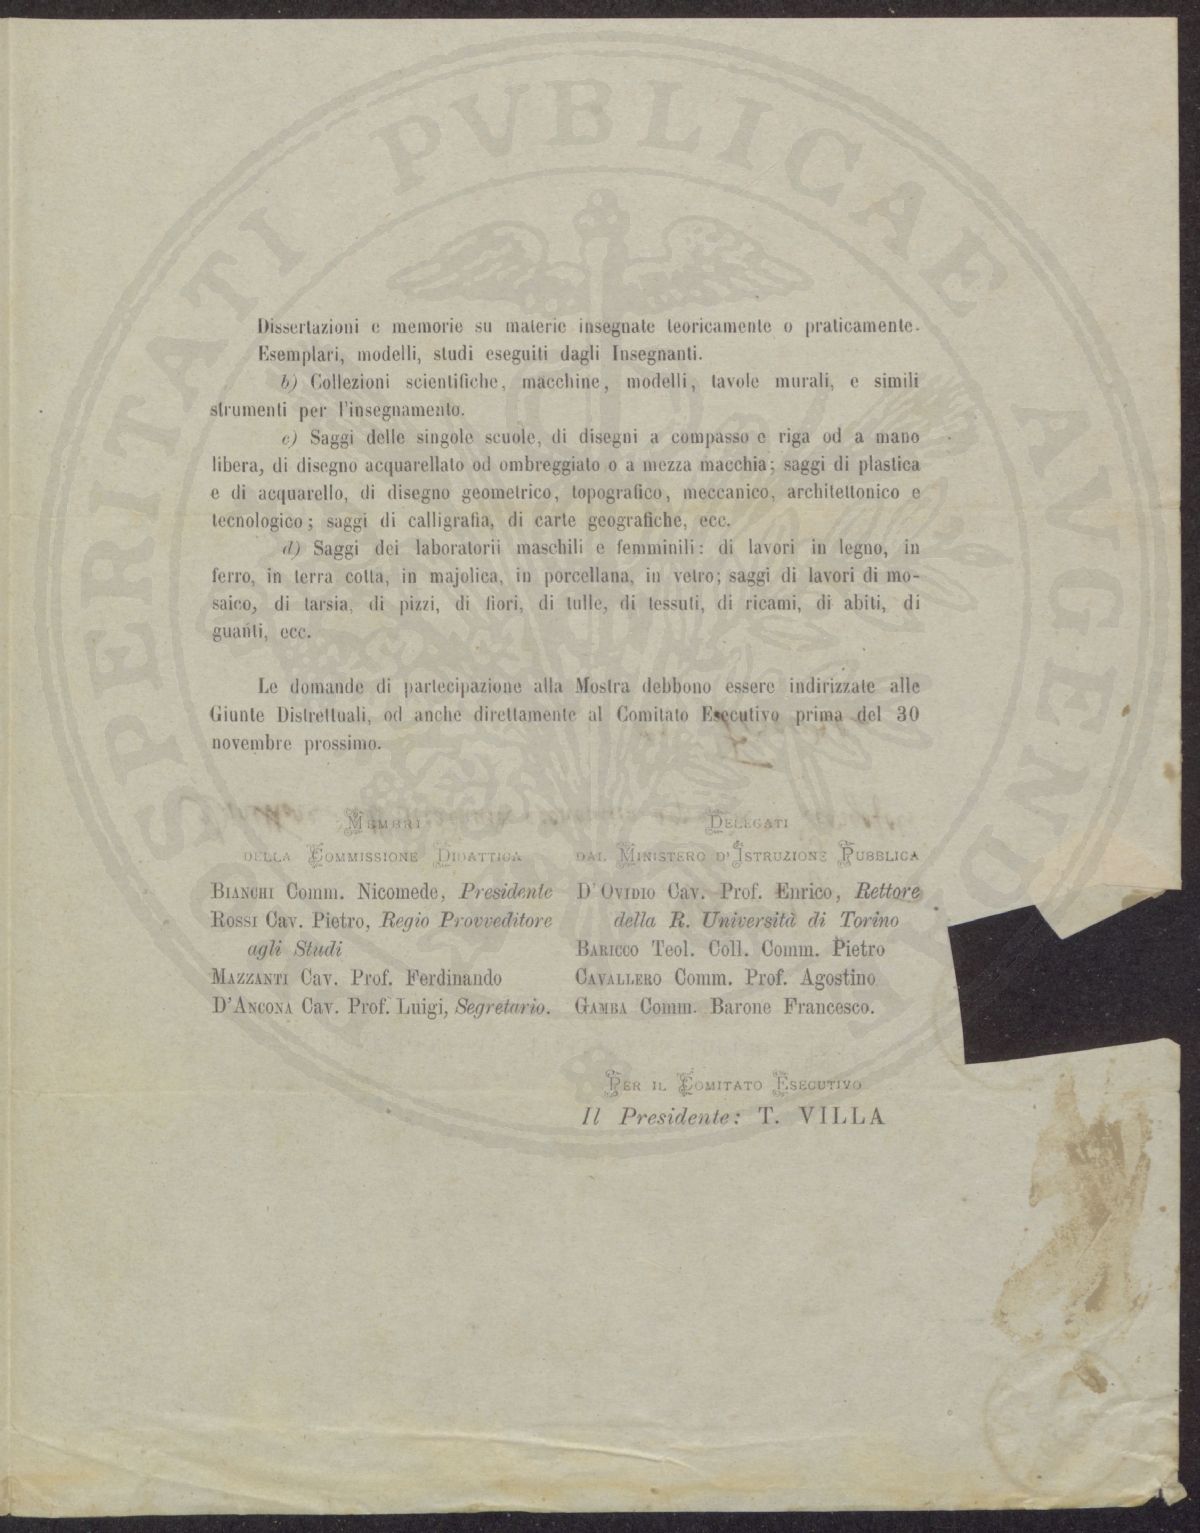 Dissertazioni e memorie su materie insegnate teoricamente o praticamente.
Esemplari, modelli, studi eseguiti dagli Insegnanti.
b) Collezioni scientifiche, macchine, modelli, tavole murali, e simili
strumenti per l'insegnamento.
c) Saggi delle singole scuole, di disegni a compasso e riga od a mano
libera, di disegno acquarellato od ombreggiato o a mezza macchia; saggi di plastica
e di acquarello, di disegno geometrico, topografico, meccanico, architettonico e
tecnologico; saggi di calligrafia, di carte geografiche, ecc.
d) Saggi dei laboratorii maschili e femminili: di lavori in legno, in
ferro, in terra cotta, in majolica, in porcellana, in vetro; saggi di lavori di mo-
saico, di tarsia, di pizzi, di fiori, di tulle, di tessuti, di ricami, di abiti, di
guanti, ecc.
Le domande di partecipazione alla Mostra debbono essere indirizzate alle
Giunte Distrettuali, od anche direttamente al Comitato Esecutivo prima del 30
novembre prossimo.
MEMBRI
DELLA COMMISSIONE DIDATTICA
BIANCHI Comm. Nicomede, Presidente
ROSSI Cav. Pietro, Regio Provveditore
agli Studi
MAZZANTI Cav. Prof. Ferdinando
D'ANCONA Cav. Prof. Luigi, Segretario.
DELEGATI
DAL MINISTERO D'ISTRUZIONE PUBBLICA
D'OVIDIO Cav. Prof. Enrico, Rettore
della R. Università di Torino
BARICCO Teol. Coll. Comm. Pietro
CAVALLERO Comm. Prof. Agostino
GAMBA Comm. Barone Francesco.
PER IL COMITATO ESECUTIVO
Il Presidente: T. VILLA
PROSPERITATI PVBLICAE AVGENDAE